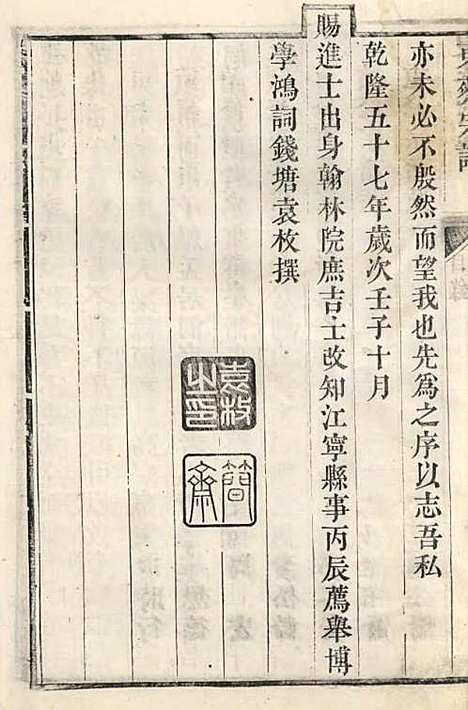 亦未必不殷然而望我也先為之序以志吾私
乾隆五十七年歲次壬子十月
賜進士出身翰林院庶吉士改知江寧縣事丙辰薦舉博
學鴻詞錢塘袁枚撰
袁枚之印
簡齋